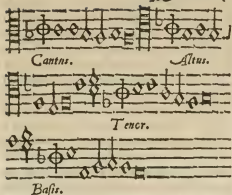 Cantus. Altus.
Tenor.
Baſis.